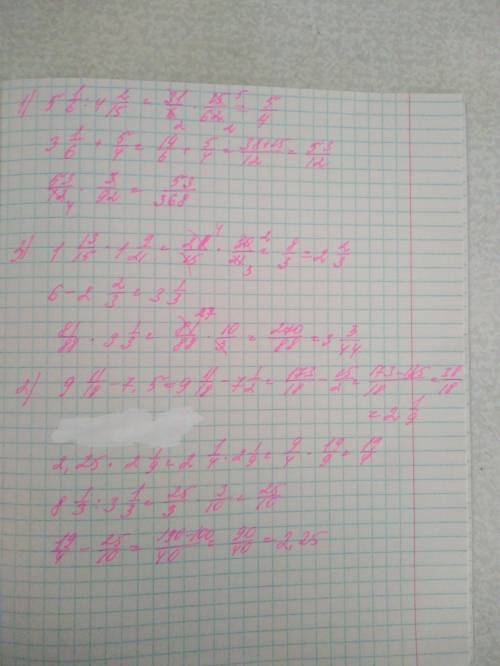 1) 5 1/6 : 4 2/15 = 31/6 · 15/62 = 5/4
3 1/6 + 5/4 = 19/6 + 5/4 = 38+15/12 = 53/12
53/12 · 3/92 = 53/368
3) 1 13/15 · 1 9/21 = 28/15 · 30/21 = 8/3 = 2 2/3
6 - 2 2/3 = 3 1/3
81/88 · 3 1/3 = 81/88 · 10/3 = 270/88 = 3 3/44
2) 9 11/18 - 7,5 = 9 11/18 - 7 1/2 = 173/18 - 15/2 = 173-135/18 = 38/18
= 2 1/9
2,25 · 2 1/9 = 2 1/4 · 2 1/9 = 9/4 · 19/9 = 19/4
8 1/3 : 3 1/3 = 25/3 · 3/10 = 25/10
19/4 - 25/10 = 190-100/40 = 90/40 = 2,25